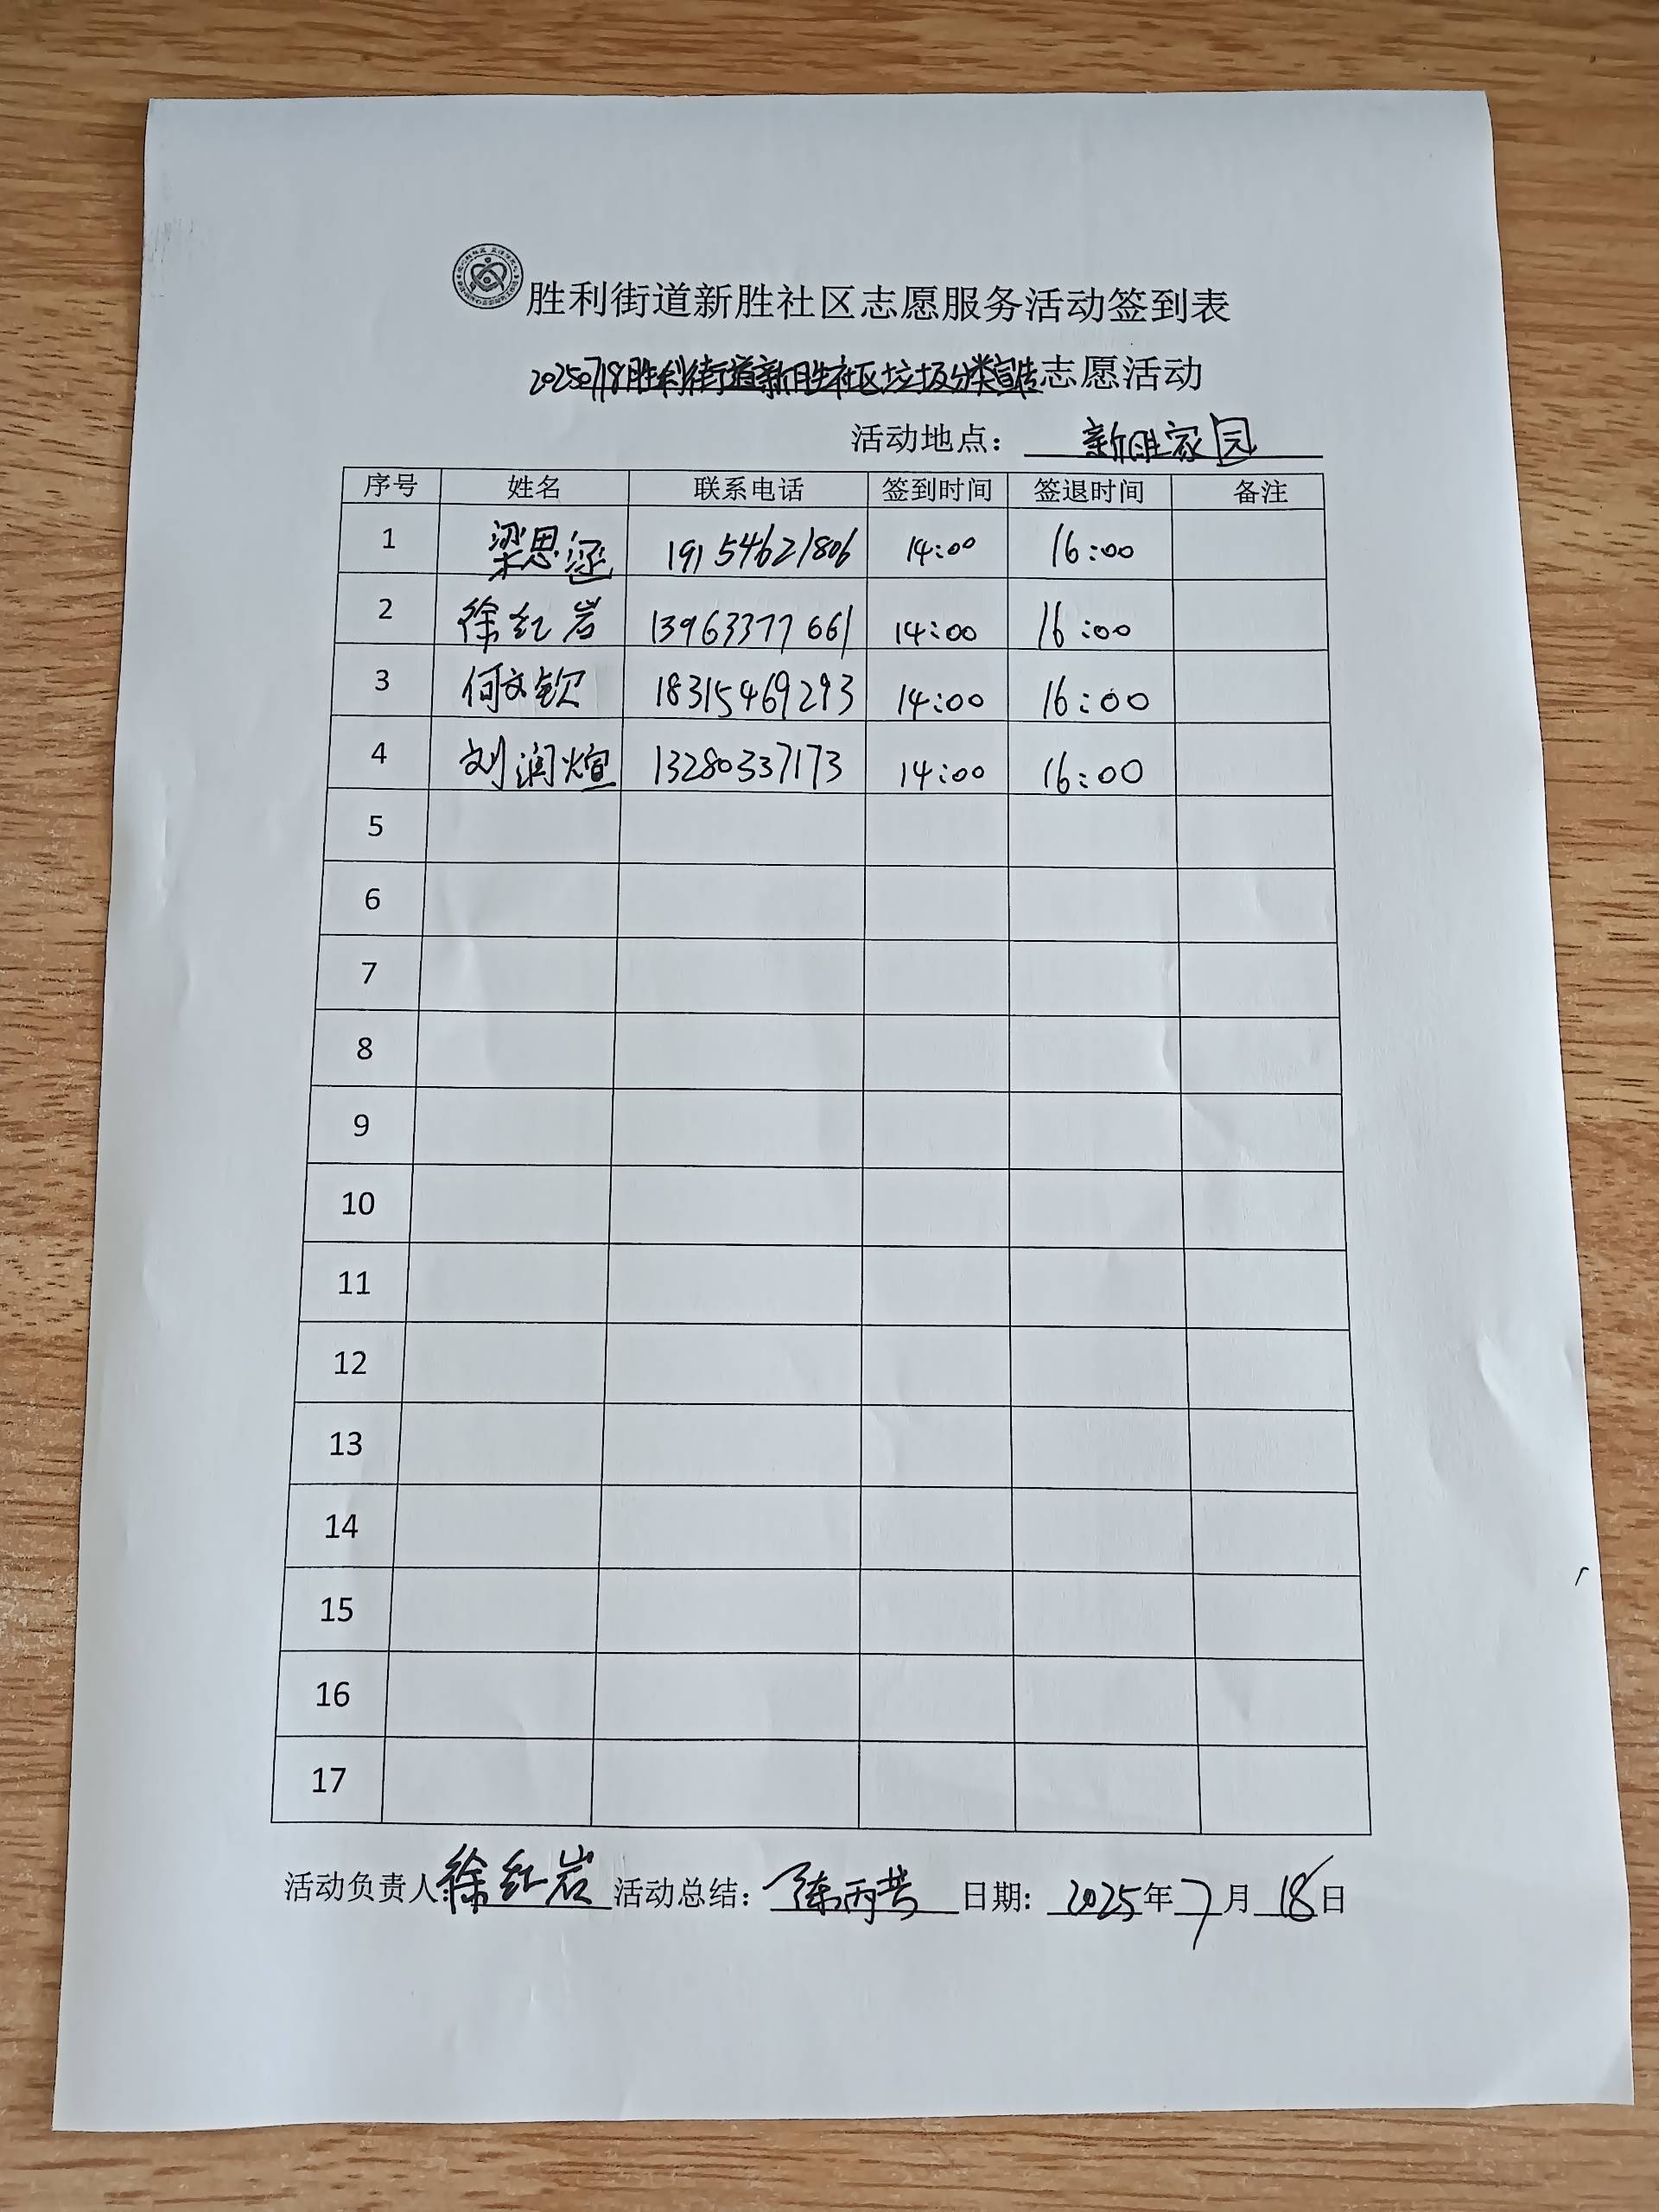 胜利街道新胜社区志愿服务活动签到表
20250718胜利街道新胜社区垃圾分类宣传志愿活动
活动地点：新胜家园
序号 姓名 联系电话 签到时间 签退时间 备注
1 梁思涵 19154621806 14:00 16:00
2 徐红岩 13963377661 14:00 16:00
3 何文钦 18315469293 14:00 16:00
4 刘润煊 13280337173 14:00 16:00
5
6
7
8
9
10
11
12
13
14
15
16
17
活动负责人徐红岩 活动总结：陈丙芸 日期：2025年7月18日